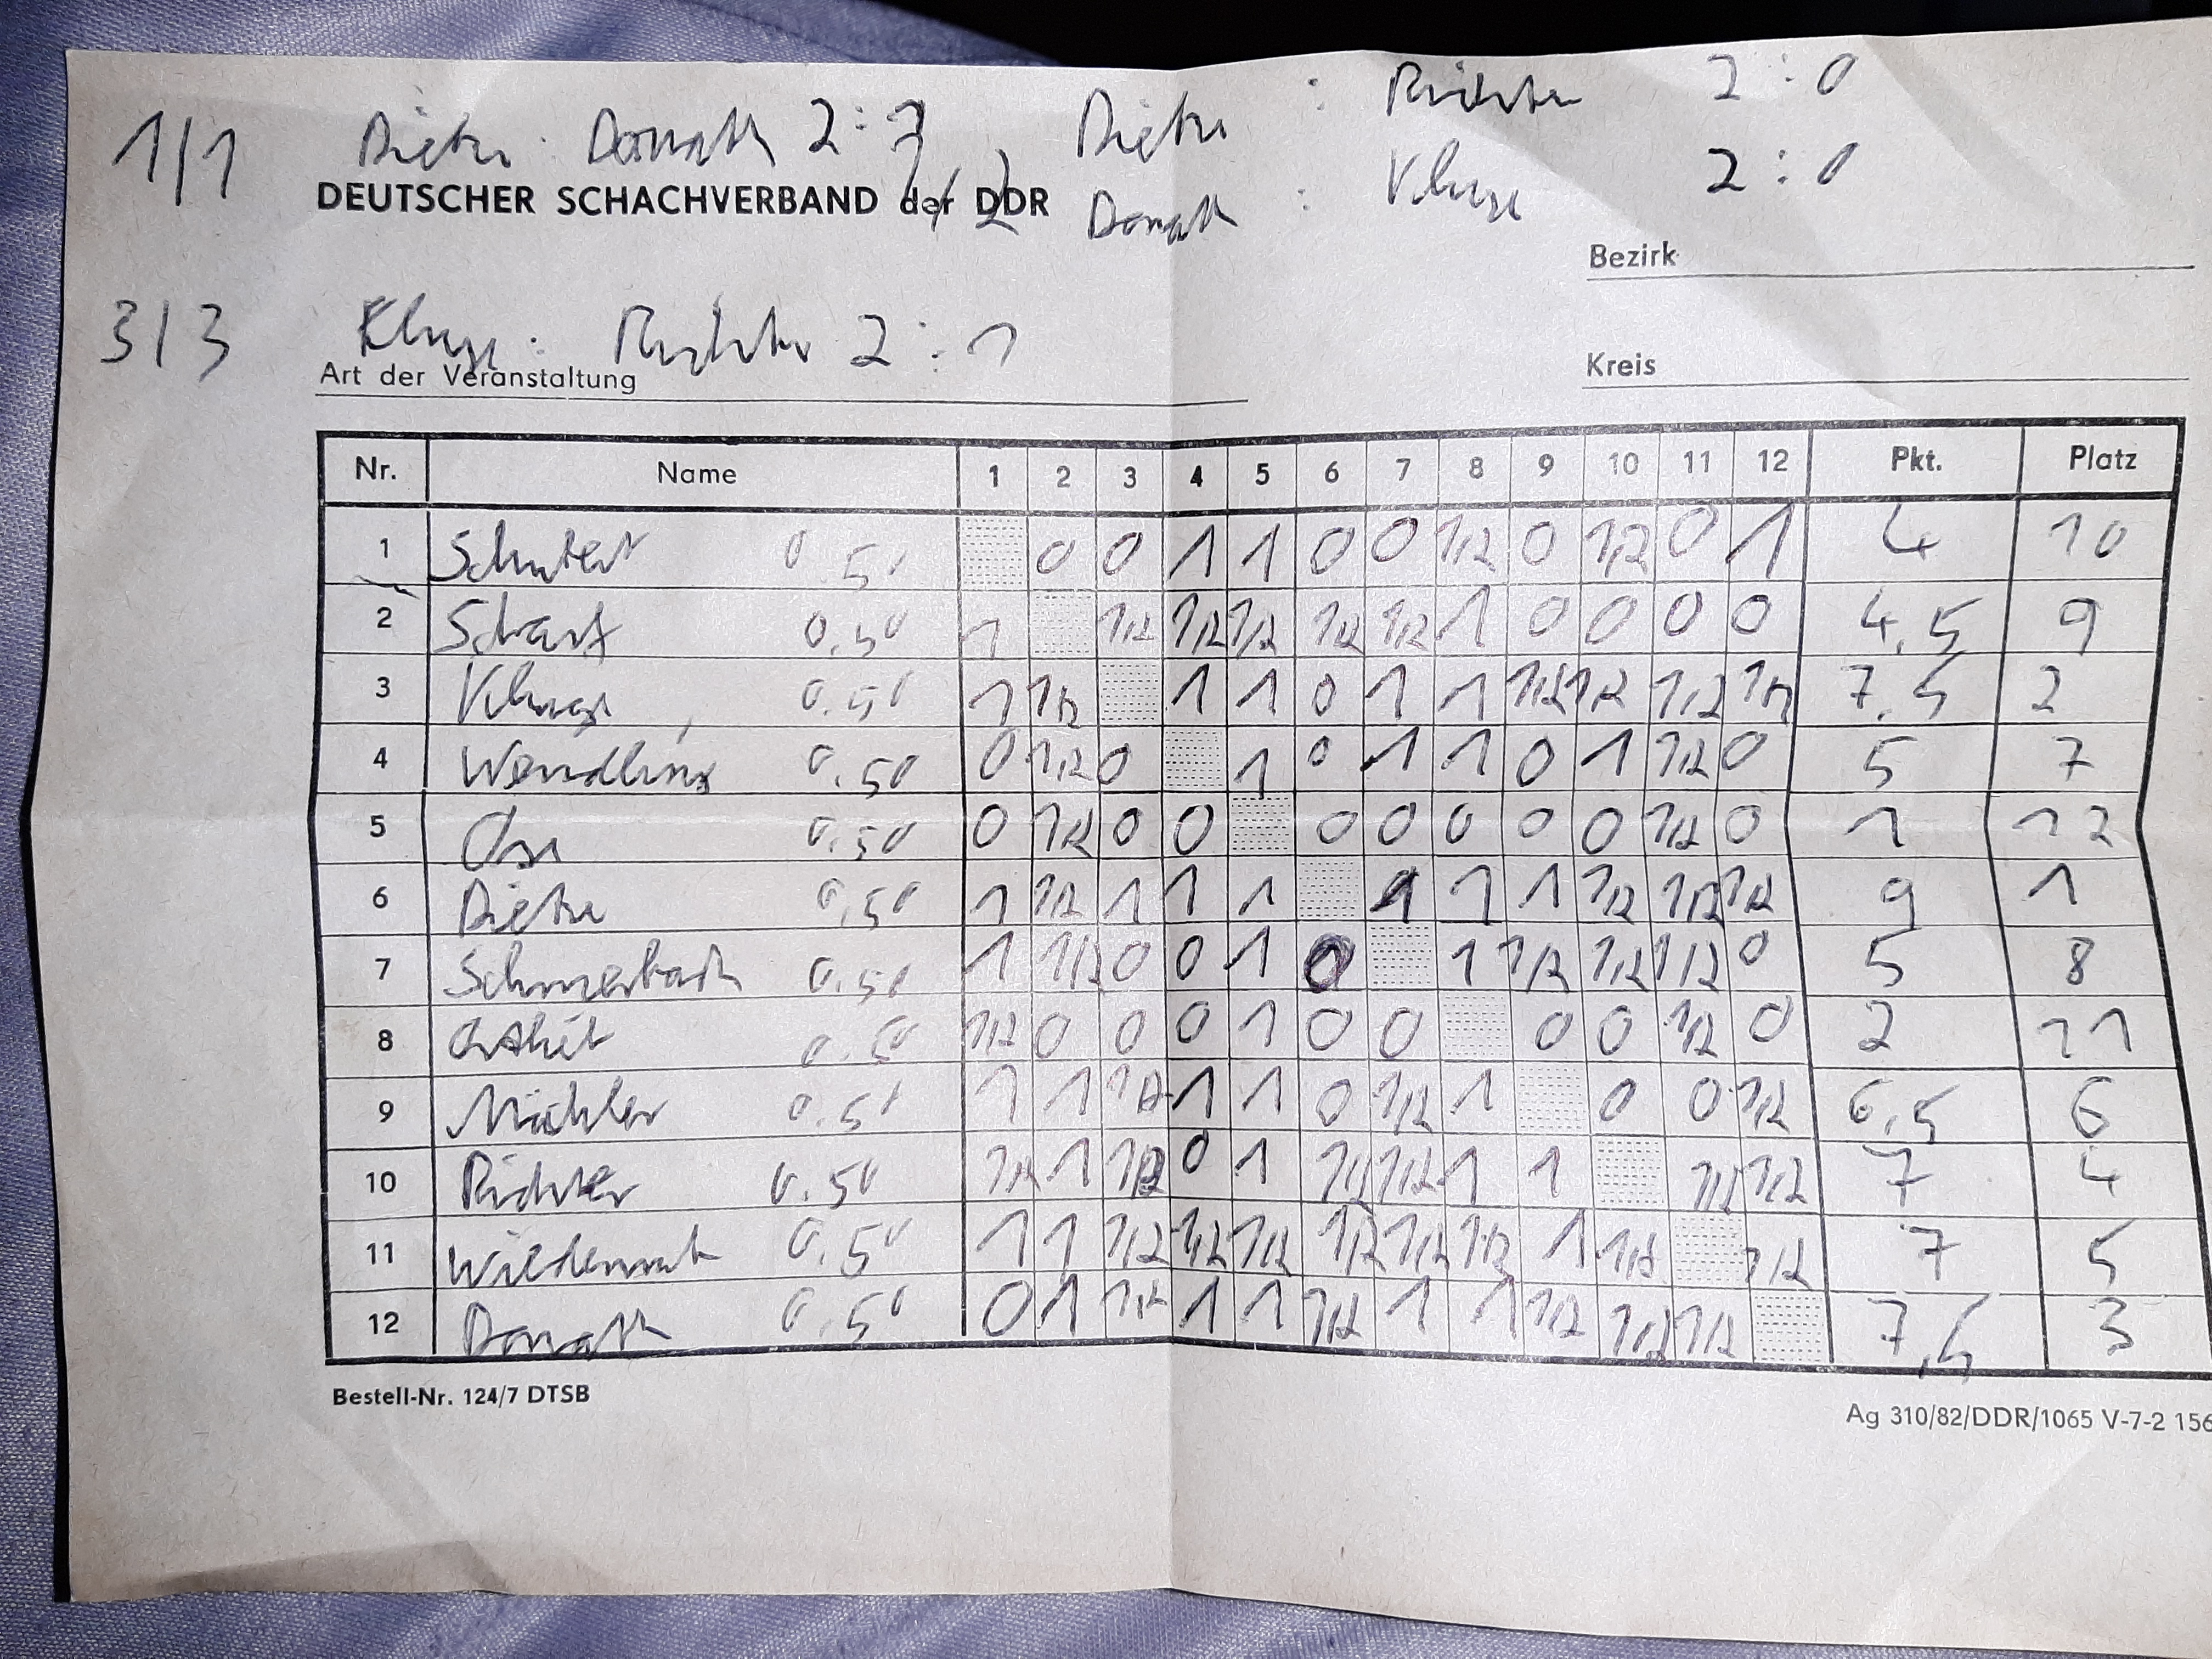 1/1 Dietze : Donath 2 : 1 1/2 Dietze : Richter 2 : 0
DEUTSCHER SCHACHVERBAND der DDR Donath : Kluge 2 : 0
Bezirk
3/3 Kluge : Richter 2 : 1
Art der Veranstaltung Kreis
Nr. Name 1 2 3 4 5 6 7 8 9 10 11 12 Pkt. Platz
1 0.50 0 0 1 1 0 0 1/2 0 1/2 0 1 4 10
2 Scharf 0.50 1 1/2 1/2 1/2 1/2 1/2 1 0 0 0 0 4,5 9
3 Kluge 0.50 1 1/2 1 1 0 1 1 1/2 1/2 1/2 1/2 7,5 2
4 Wendling 0.50 0 1/2 0 1 0 1 1 0 1 1/2 0 5 7
5 0.50 0 1/2 0 0 0 0 0 0 0 1/2 0 1 12
6 Dietze 0.50 1 1/2 1 1 1 1 1 1 1/2 1/2 1/2 9 1
7 Schmerbach 0.50 1 1/2 0 0 1 0 1 1/2 1/2 1/2 0 5 8
8 0.50 1/2 0 0 0 1 0 0 0 0 1/2 0 2 11
9 0.50 1 1 1/2 1 1 0 1/2 1 0 0 1/2 6,5 6
10 Richter 0.50 1/2 1 1/2 0 1 1/2 1/2 1 1 1/2 1/2 7 4
11 0.50 1 1 1/2 1/2 1/2 1/2 1/2 1/2 1 1/2 1/2 7 5
12 Donath 0.50 0 1 1/2 1 1 1/2 1 1 1/2 1/2 1/2 7,5 3
Bestell-Nr. 124/7 DTSB
Ag 310/82/DDR/1065 V-7-2 156